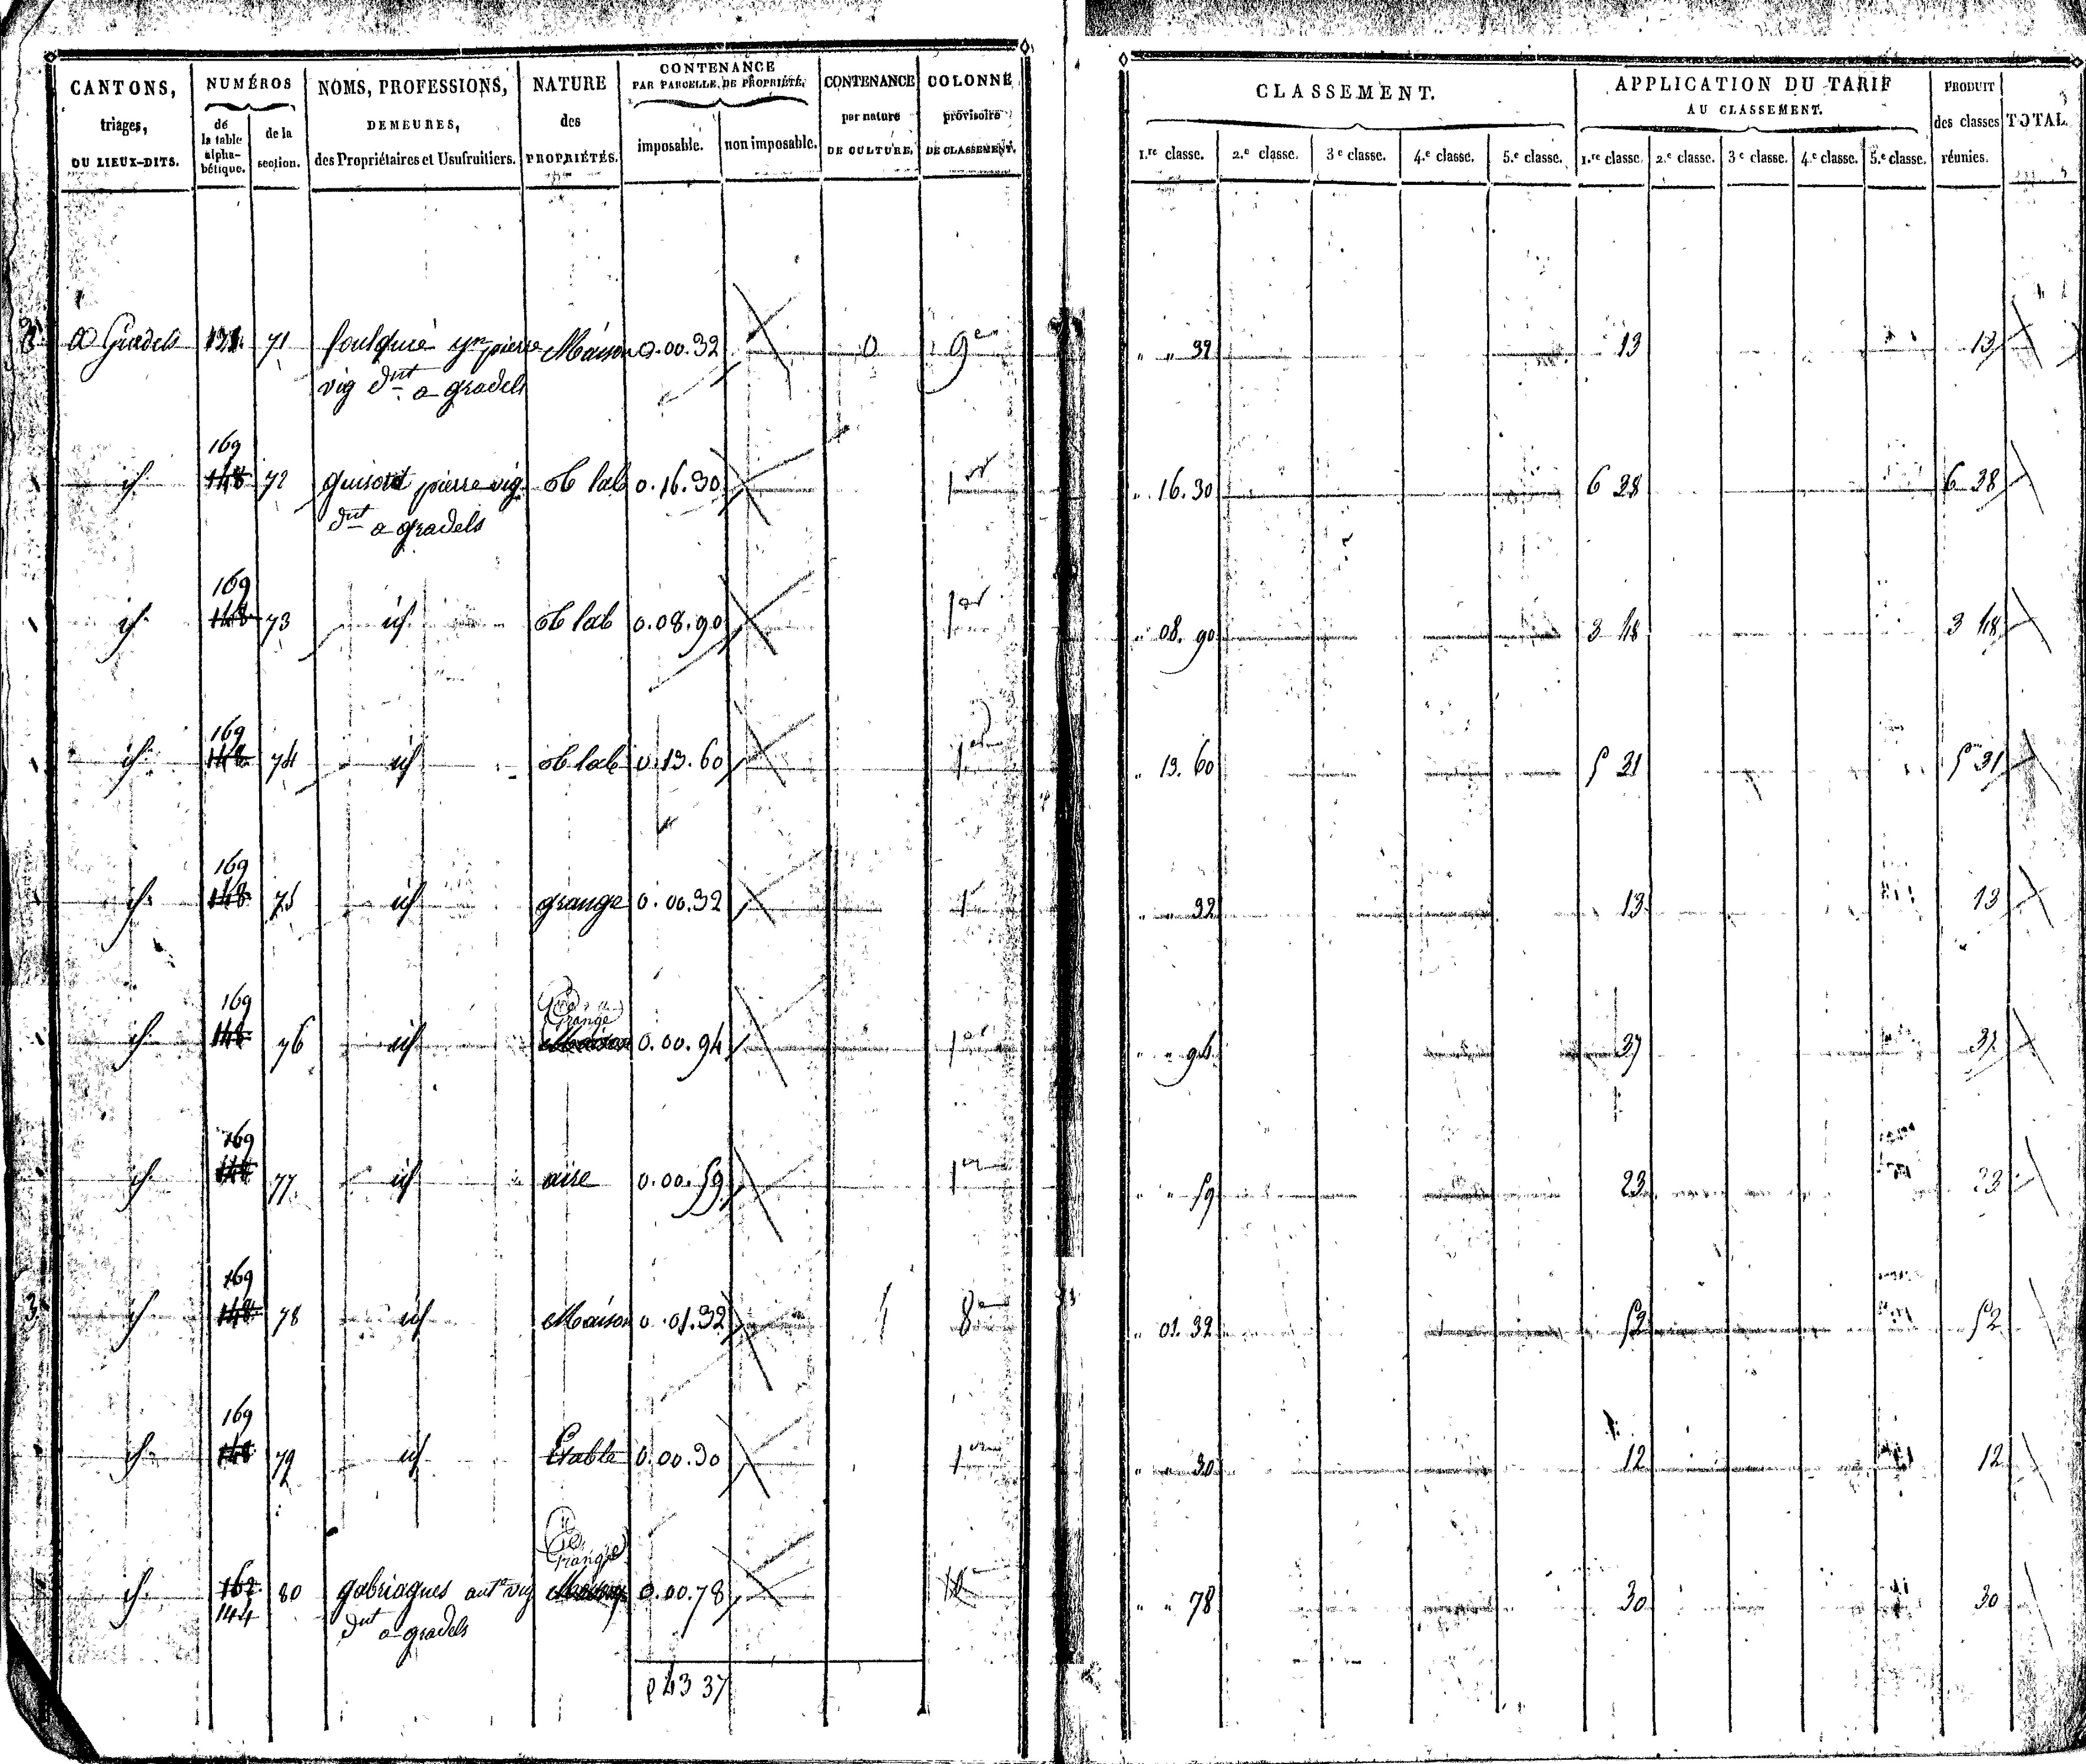 CANTONS, triages, OU LIEUX-DITS.
NUMÉROS
de la table alpha-bétique.
de la section.
NOMS, PROFESSIONS, DEMEURES, des Propriétaires et Usufruitiers.
NATURE des PROPRIÉTÉS.
CONTENANCE PAR PARCELLE DE PROPRIÉTÉ.
imposable. non imposable.
CONTENANCE par nature DE CULTURE.
COLONNE provisoire DE CLASSEMENT.
CLASSEMENT.
1.re classe. 2.e classe. 3e classe. 4.e classe. 5.e classe.
APPLICATION DU TARIF AU CLASSEMENT.
1.re classe. 2.e classe. 3e classe. 4.e classe. 5.e classe.
PRODUIT des classes réunies.
TOTAL.
71 pierre Maison 0.00.32 0 9e " " 32 13 13
vig dnt a gradels
169
id. 148 72 pierre vig. lab 0.16.30 1er " 16.30 6 38 6 38
dnt a gradels
169
id. 148 73 id lab 0.08.90 1er " 08.90 3 48 3 48
169
id. 148 74 id lab 0.13.60 1er " 13.60 5 31 5 31
169
id. 148 75 id grange 0.00.32 1er " " 32 13 13
169 Grange
id. 148 76 id Maison 0.00.94 1er " " 94 37 37
169
id. 148 77 id aire 0.00.59 1er " " 59 23 23
169
id. 148 78 id Maison 0.01.32 1 8e " 01.32 52 52
169
id. 148 79 id Etable 0.00.30 1er " " 30 12 12
Grange
id. 162 80 gabriagues ante vig Maison 0.00.78 " " 78 30 30
144 dnt a gradels
43 37